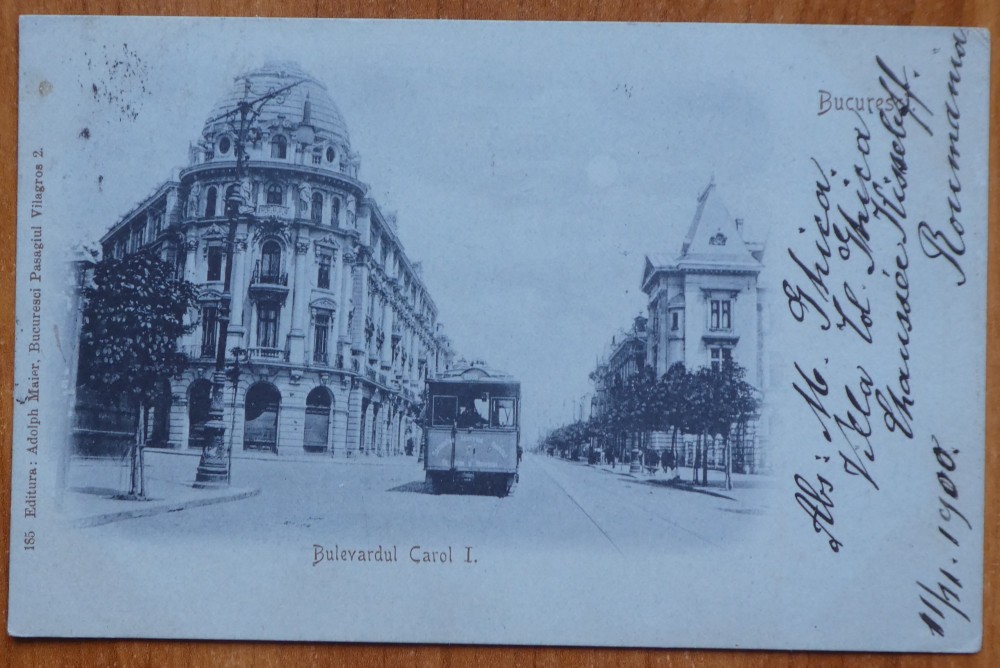 Bucuresci.
185 Editura: Adolph Maier, Bucuresci Pasagiul Vilagros 2.
Bulevardul Carol I.
Abs: M. Ghica.
Villa Col. Ghica
Chaussée Kisseleff
Roumania
11/11. 1900.